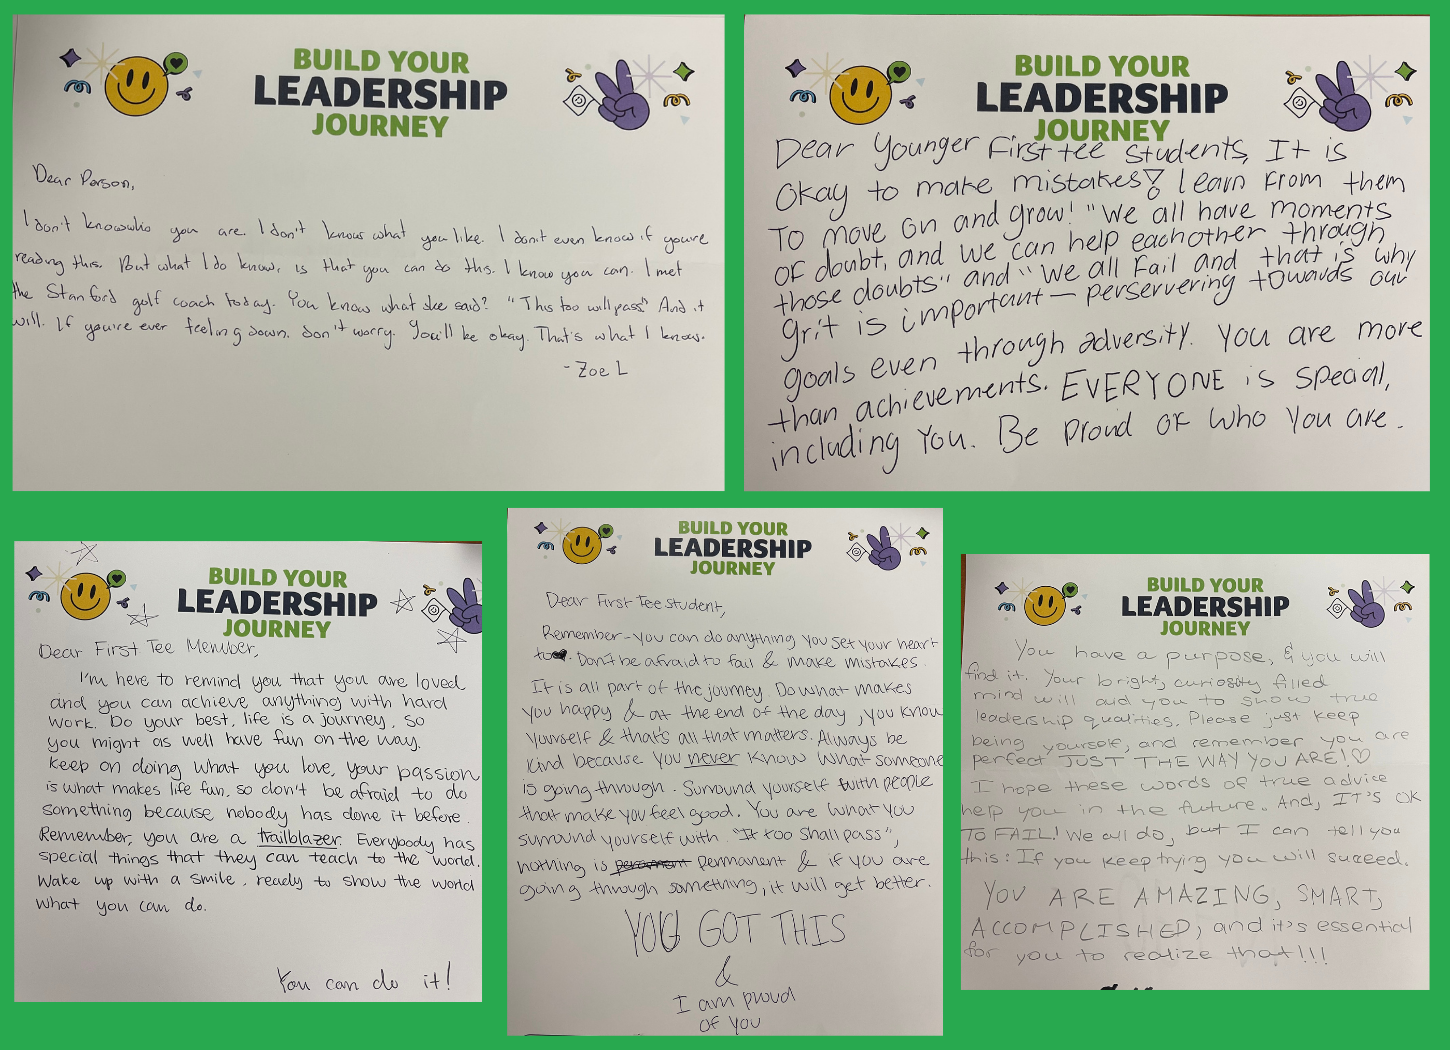 BUILD YOUR
LEADERSHIP
JOURNEY
Dear Person,
I don't know who you are. I don't know what you like. I don't even know if you're
reading this. But what I do know, is that you can do this. I know you can. I met
the Stanford golf coach today. You know what she said? "This too will pass" And it
will. If you're ever feeling down, don't worry. You'll be okay. That's what I know.
- Zoe L
BUILD YOUR
LEADERSHIP
JOURNEY
Dear Younger First tee students, It is
Okay to make mistakes! Learn From them
To move on and grow! "We all have moments
OF doubt, and we can help eachother through
those doubts" and "We all Fail and that is why
grit is important — perservering towards our
goals even through adversity. You are more
than achievements. EVERYONE is special,
including You. Be Proud OF Who You are.
BUILD YOUR
LEADERSHIP
JOURNEY
Dear First Tee Member,
I'm here to remind you that you are loved
and you can achieve anything with hard
work. Do your best, life is a journey, so
you might as well have fun on the way.
Keep on doing what you love, your passion
is what makes life fun, so don't be afraid to do
something because nobody has done it before.
Remember, you are a trailblazer. Everybody has
special things that they can teach to the world.
Wake up with a smile, ready to show the world
what you can do.
You can do it!
BUILD YOUR
LEADERSHIP
JOURNEY
Dear First Tee student,
Remember - you can do anything you set your heart
to. Don't be afraid to fail & make mistakes.
It is all part of the journey. Do what makes
you happy & at the end of the day, you know
yourself & that's all that matters. Always be
kind because you never know what someone
is going through. Surround yourself with people
that make you feel good. You are what you
surround yourself with. "It too shall pass",
nothing is permanent & if you are
going through something, it will get better.
YOU GOT THIS
&
I am proud
of you
BUILD YOUR
LEADERSHIP
JOURNEY
You have a purpose, & you will
find it. Your bright, curiosity filled
mind will aid you to show true
leadership qualities. Please just keep
being yourself, and remember you are
perfect JUST THE WAY YOU ARE!♡
I hope these words of true advice
help you in the future. And, IT'S OK
TO FAIL! We all do, but I can tell you
this: If you keep trying you will succeed.
YOU ARE AMAZING, SMART,
ACCOMPLISHED, and it's essential
for you to realize that!!!